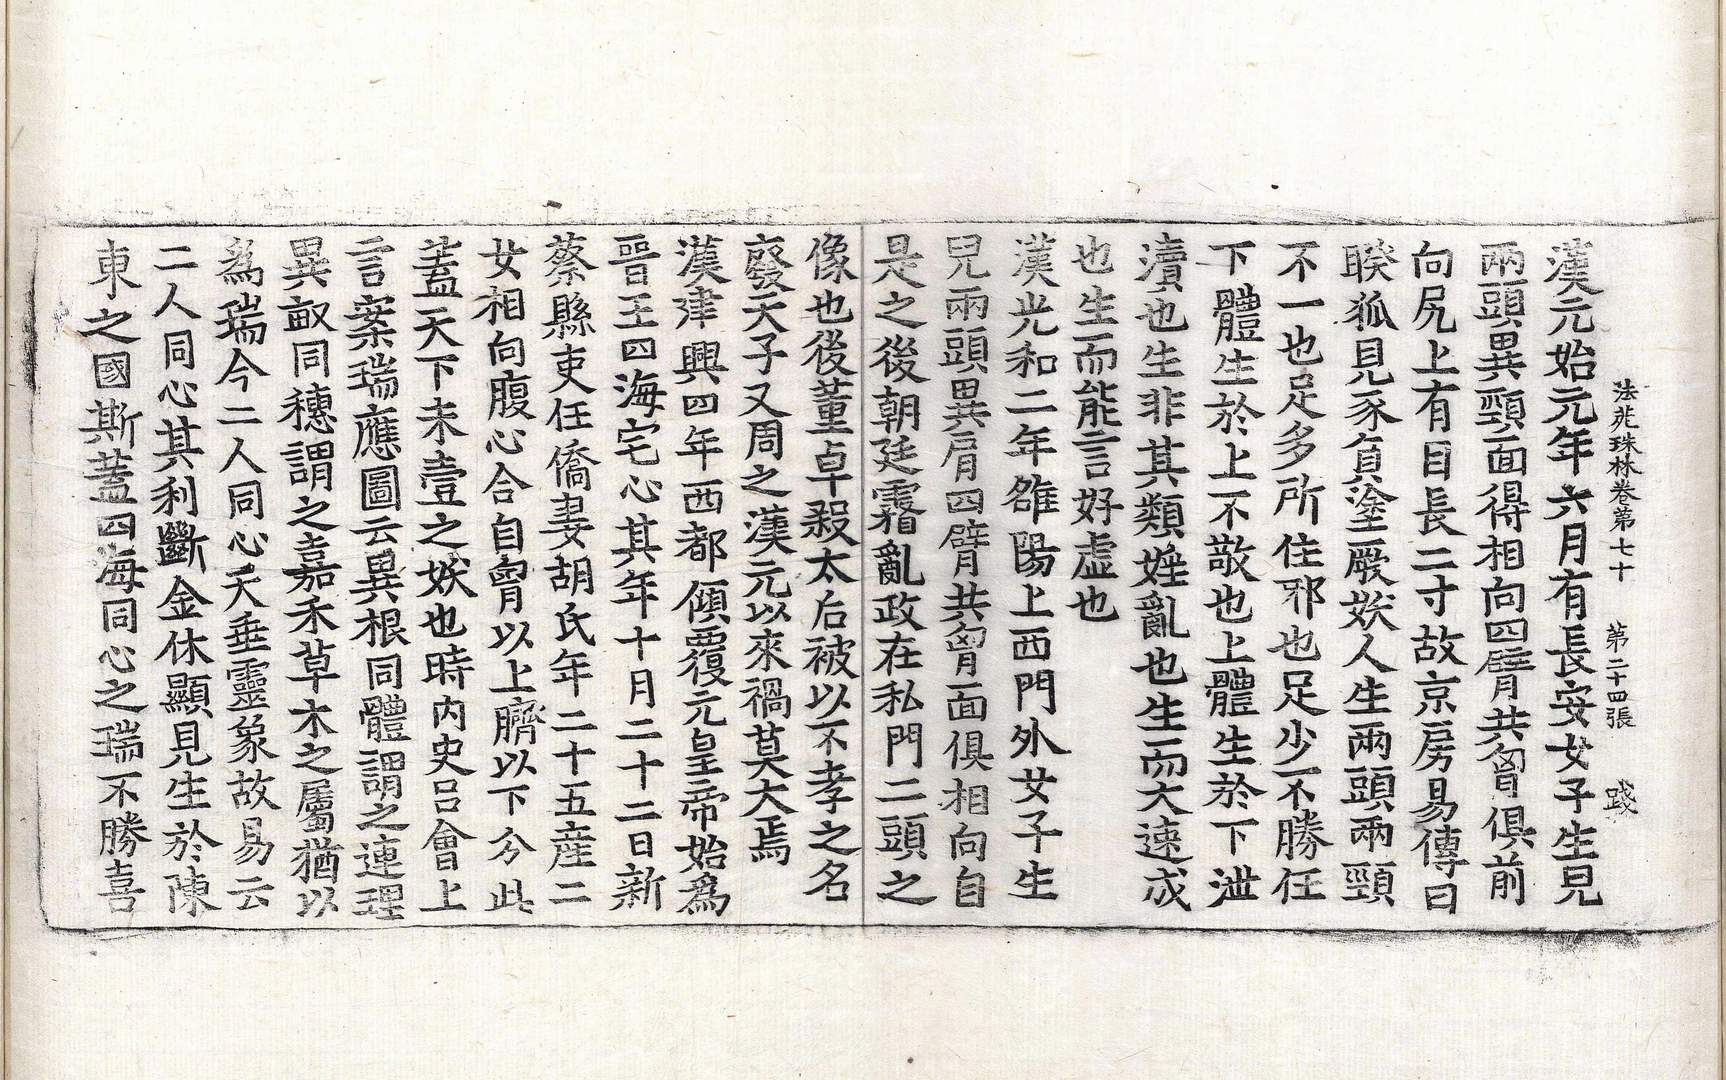 法苑珠林卷第七十 第二十四張 踐
漢元始元年六月有長安女子生兒
兩頭異頸面得相向四臂共匈俱前
向尻上有目長二寸故京房易傳曰
睽狐見豕負塗厥妖人生兩頭兩頸
不一也足多所住邪也足少不勝任
下體生於上不敬也上體生於下泄
瀆也生非其類婬亂也生而大速成
也生而能言好虛也
漢光和二年雒陽上西門外女子生
兒兩頭異肩四臂共匈面俱相向自
是之後朝廷霿亂政在私門二頭之
像也後董卓殺太后被以不孝之名
廢天子又周之漢元以來禍莫大焉
漢建興四年西都傾覆元皇帝始為
晉王四海宅心其年十月二十二日新
蔡縣吏任僑妻胡氏年二十五産二
女相向腹心合自胷以上臍以下分此
蓋天下未壹之妖也時內史呂會上
言案瑞應圖云異根同體謂之連理
異畝同穗謂之嘉禾草木之屬猶以
為瑞今二人同心天垂靈象故易云
二人同心其利斷金休顯見生於陳
東之國斯蓋四海同心之瑞不勝喜